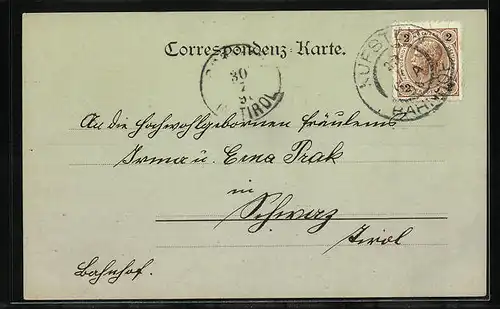 Correspondenz-Karte.
2 2
KUFST
BAHNHO
30
7
TIROL
An die Hochwohlgebornen Fräuleins
Irma u. Erna Prak
in
Schwaz
Tirol
Bahnhof.